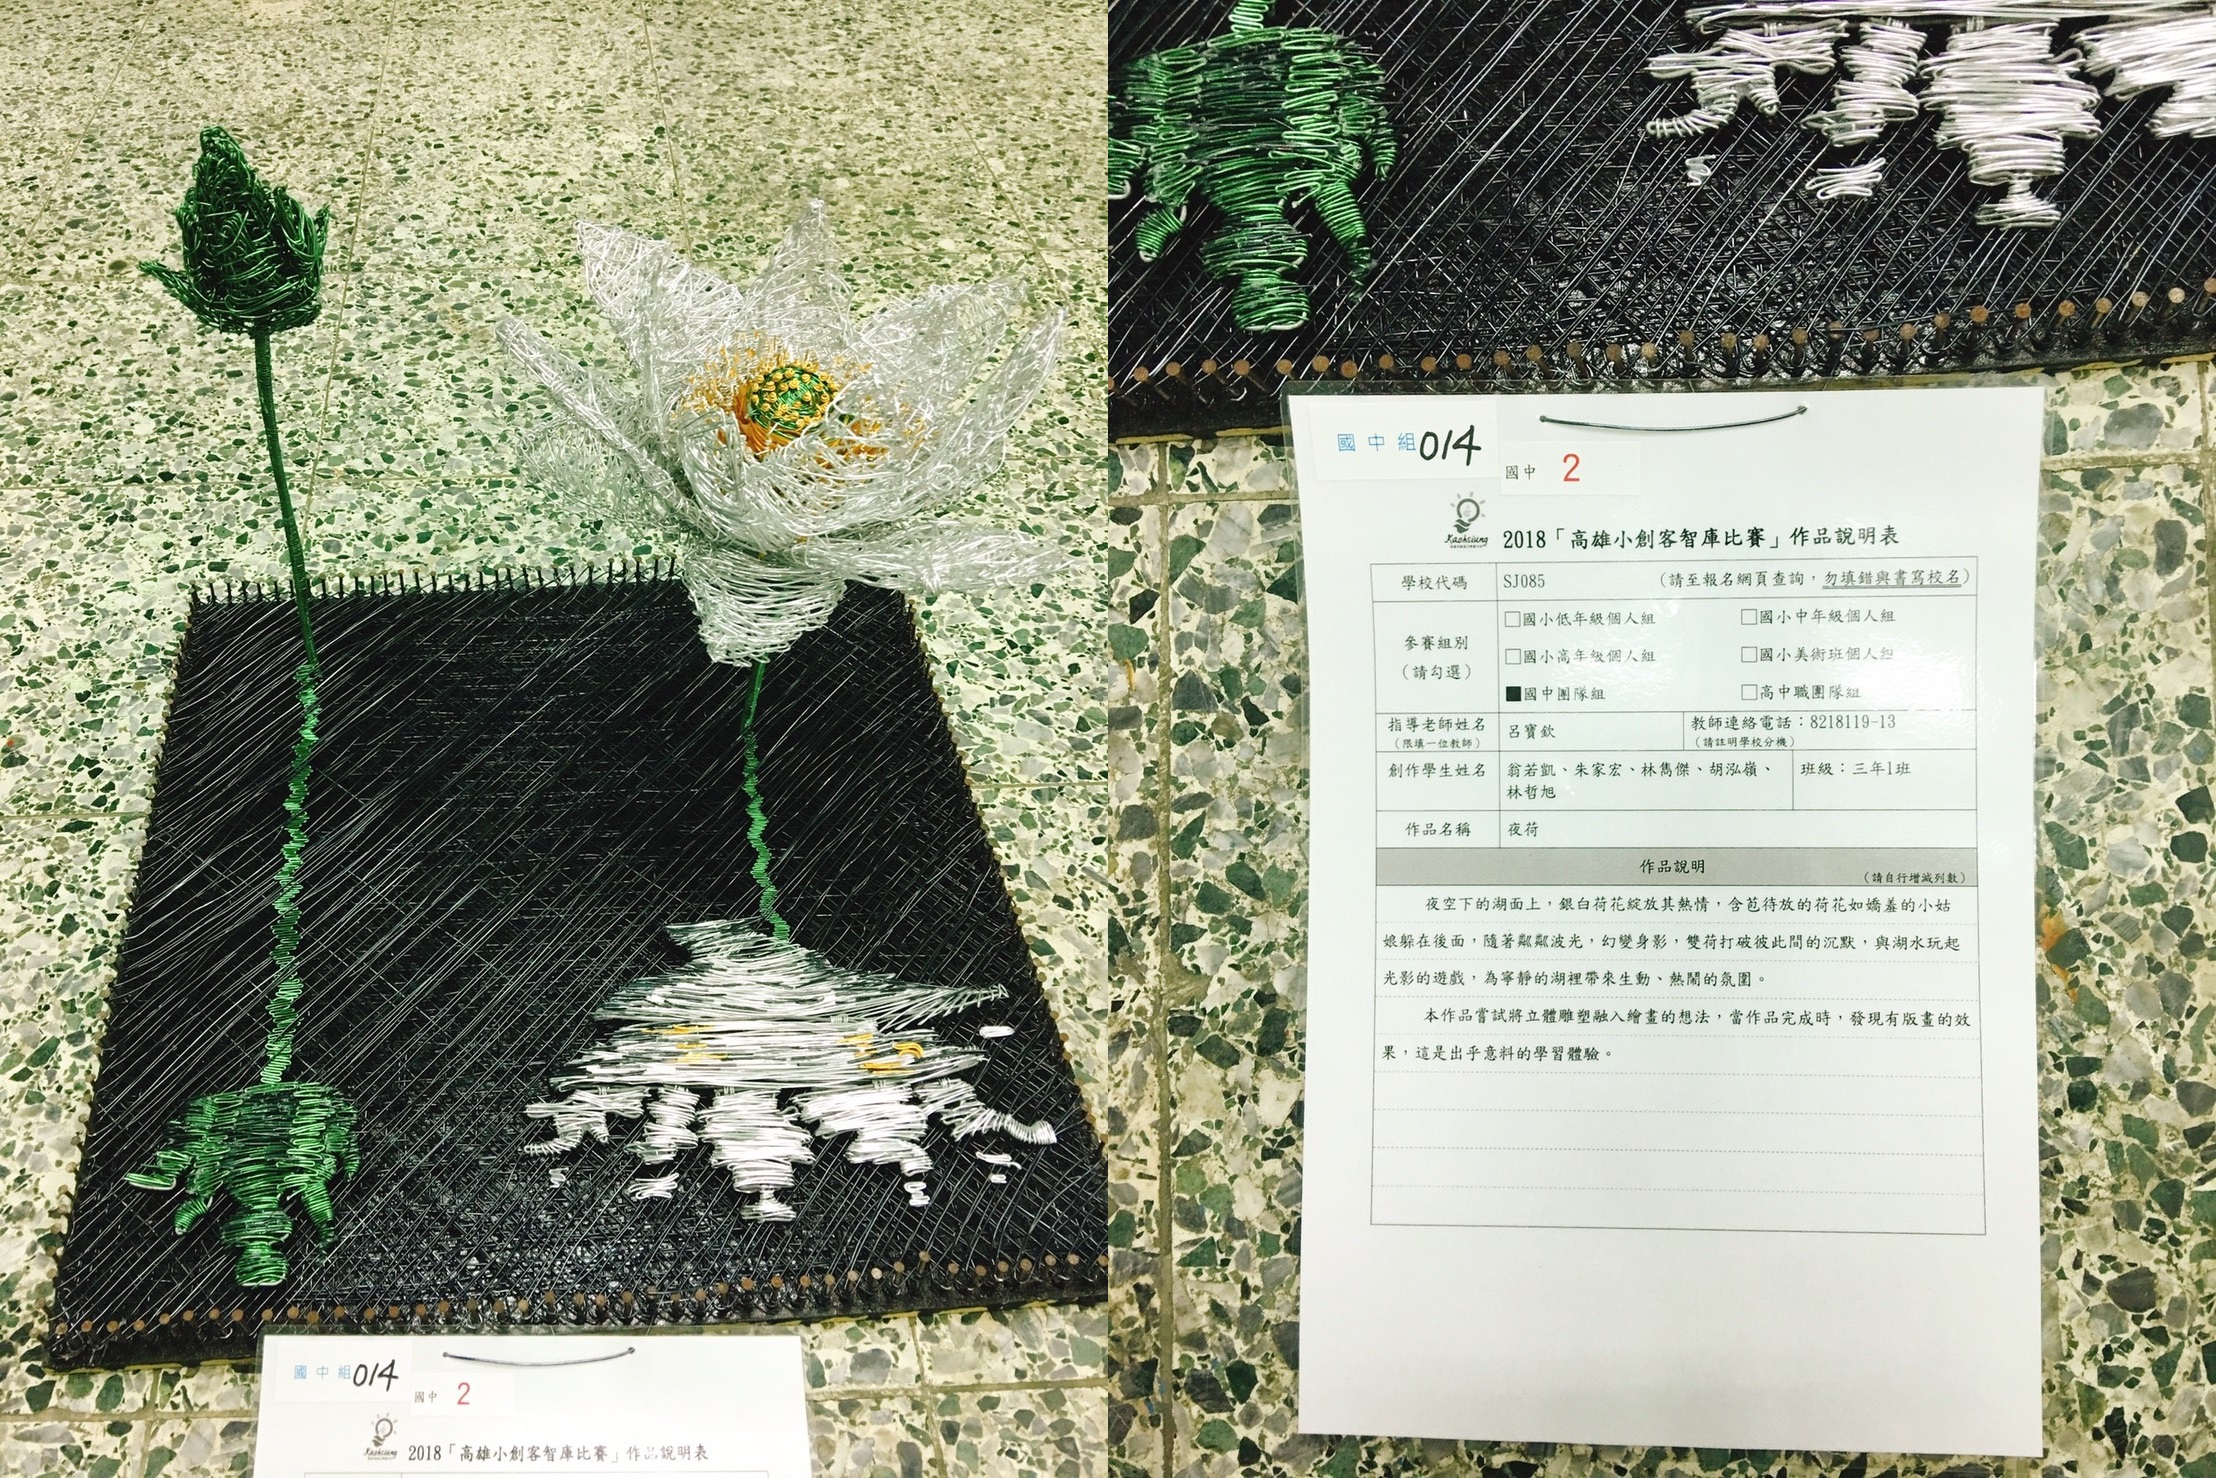 國中組014
國中 2
Kaohsiung
2018「高雄小創客智庫比賽」作品說明表
國中組014
國中 2
Kaohsiung
2018「高雄小創客智庫比賽」作品說明表
學校代碼 SJ085 (請至報名網頁查詢，勿填錯與書寫校名)
參賽組別
(請勾選)
□國小低年級個人組 □國小中年級個人組
□國小高年級個人組 □國小美術班個人組
■國中團隊組 □高中職團隊組
指導老師姓名 呂寶欽 教師連絡電話：8218119-13
(限填一位教師) (請註明學校分機)
創作學生姓名 翁若凱、朱家宏、林雋傑、胡泓嶺、 班級：三年1班
林哲旭
作品名稱 夜荷
作品說明 (請自行增減列數)
夜空下的湖面上，銀白荷花綻放其熱情，含苞待放的荷花如嬌羞的小姑
娘躲在後面，隨著粼粼波光，幻變身影，雙荷打破彼此間的沉默，與湖水玩起
光影的遊戲，為寧靜的湖裡帶來生動、熱鬧的氛圍。
本作品嘗試將立體雕塑融入繪畫的想法，當作品完成時，發現有版畫的效
果，這是出乎意料的學習體驗。